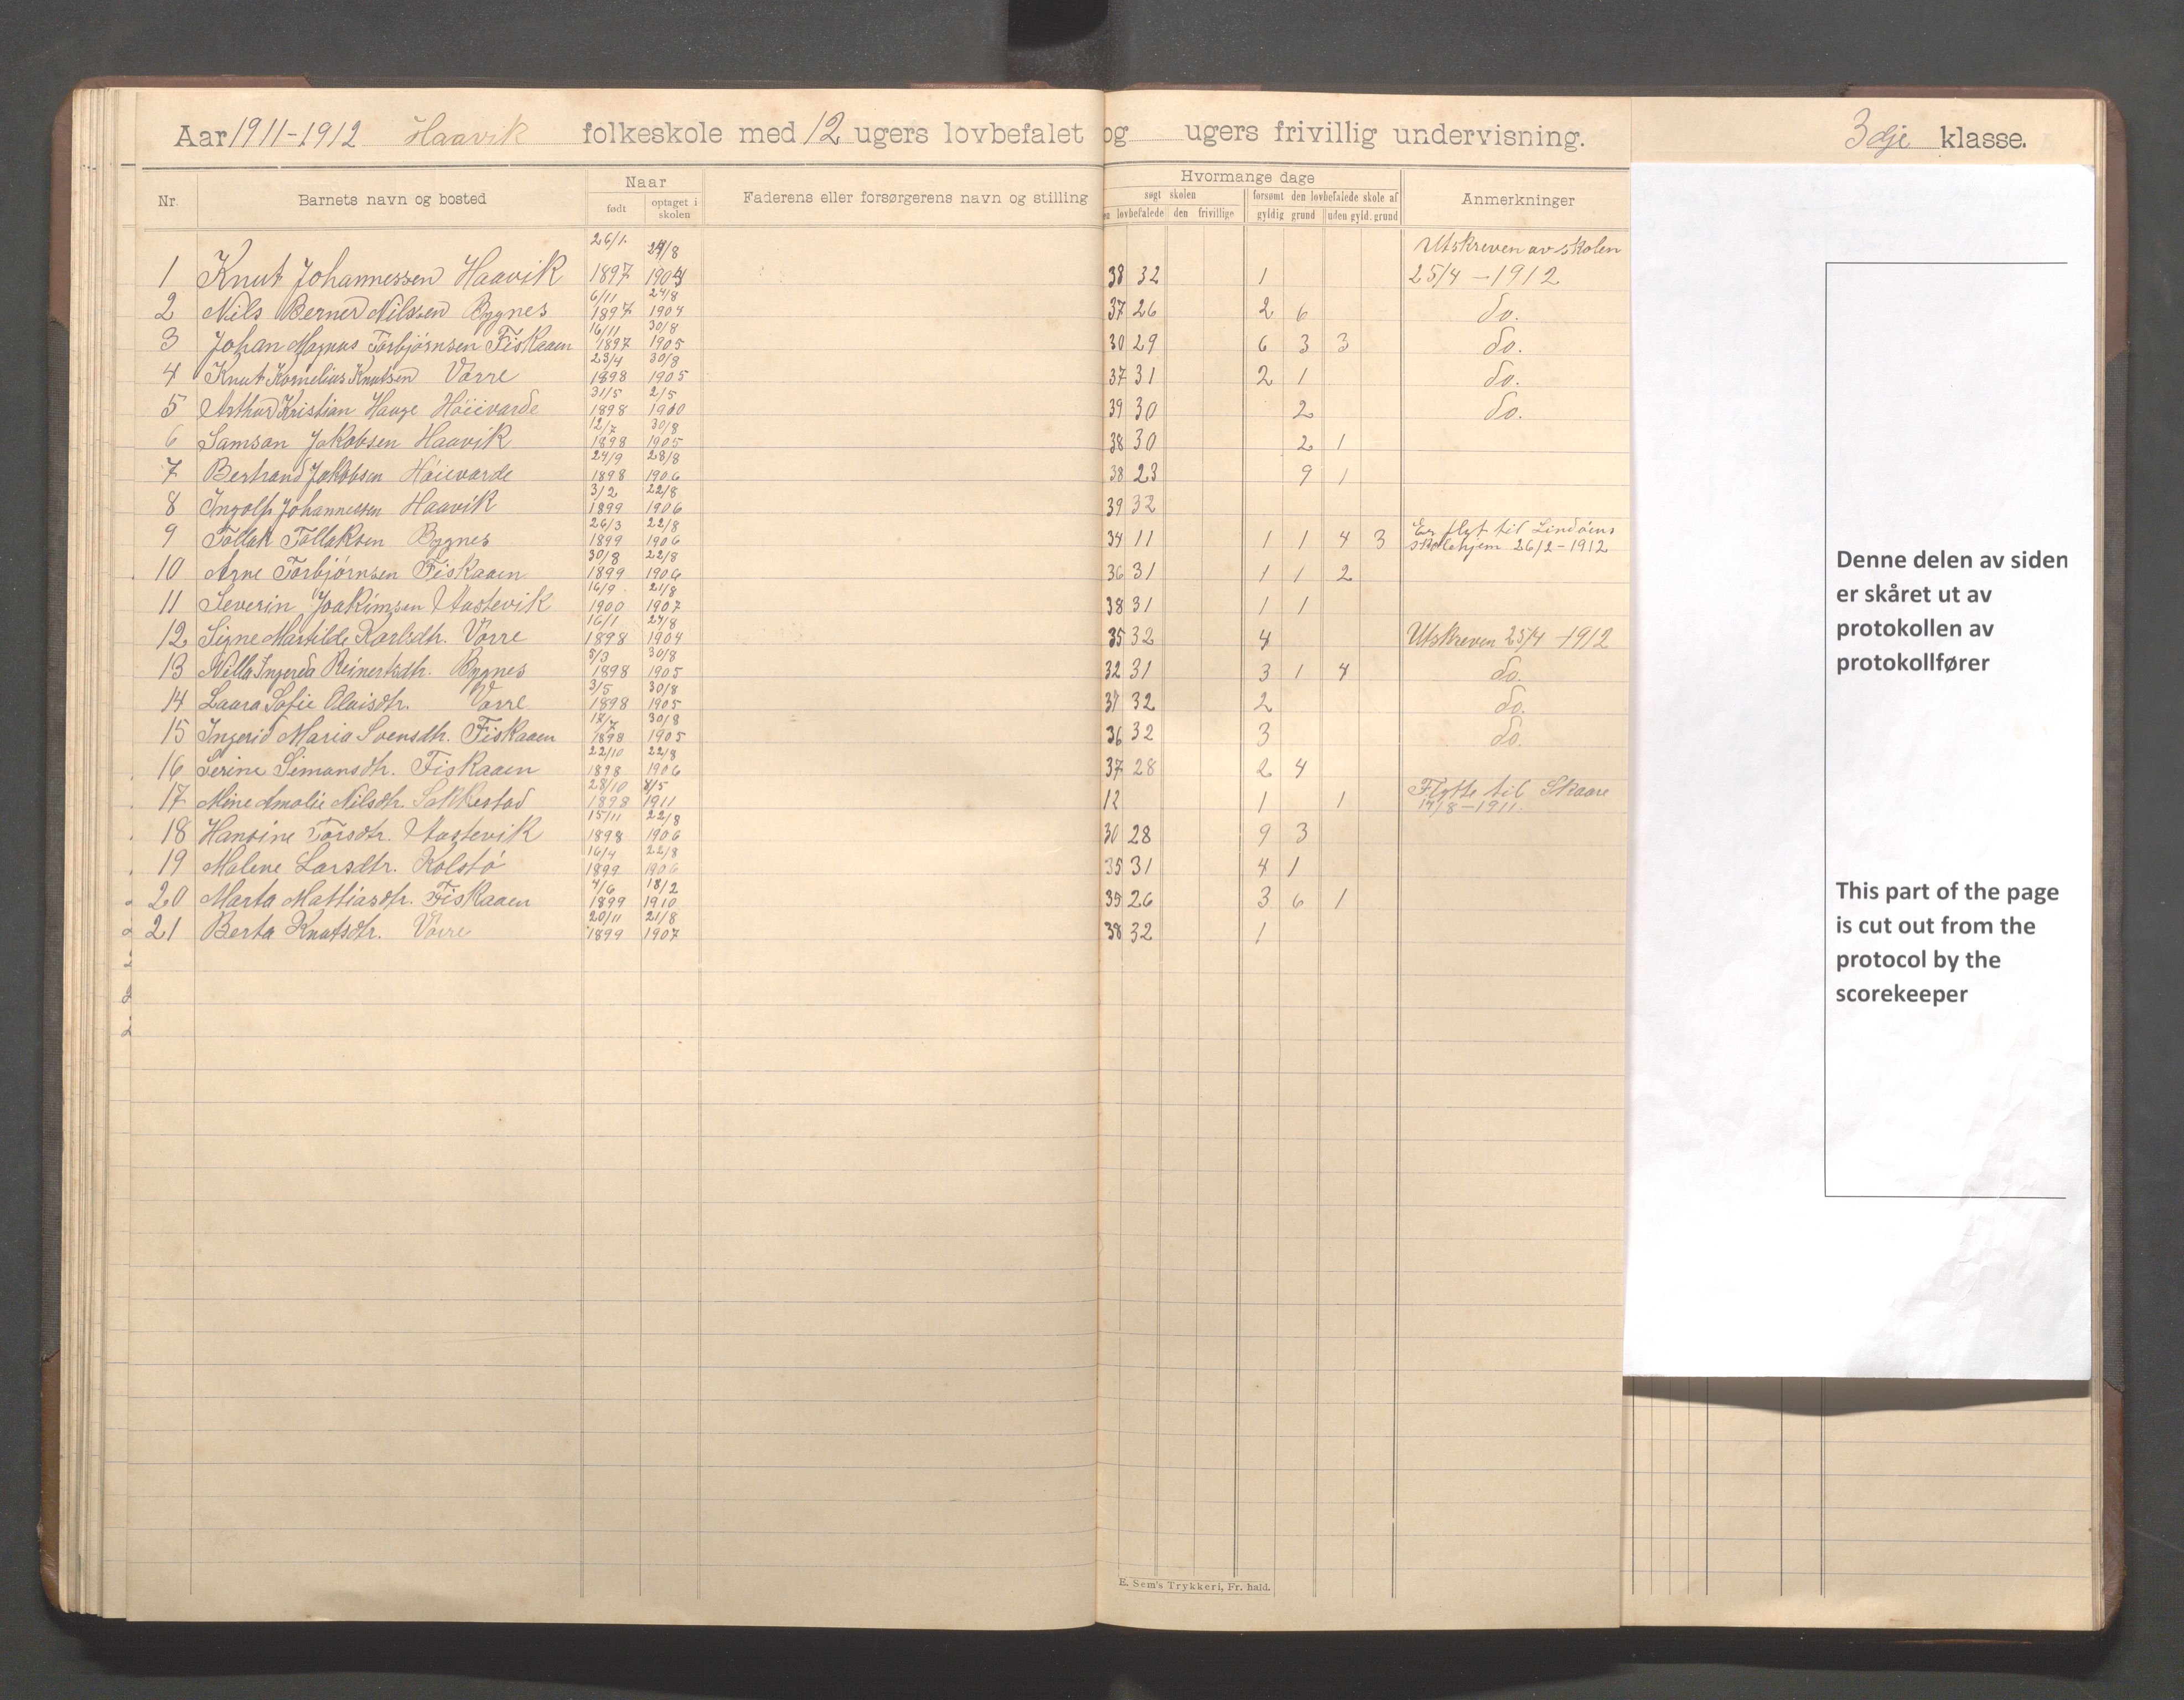 Aar 1911-1912 Haavik folkeskole med 12 ugers lovbefalet og ugers frivillig undervisning. 3dje klasse.
Nr. Barnets navn og bosted Naar født optaget i skolen Faderens eller forsørgerens navn og stilling Hvormange dage søgt skolen lovbefalede den frivillige forsømt den lovbefalede skole af gyldig grund uden gyld. grund Anmerkninger
1 Knut Johannessen Haavik 26/1. 1897 24/8 1904 38 32 1 Utskreven av skolen 25/4 - 1912
2 Nils Berner Nilssen Bygnes 6/11 1897 24/8 1904 37 26 2 6 do.
3 Johan Magnus Torbjørnsen Fiskaaen 16/11 1897 30/8 1905 30 29 6 3 3 do.
4 Knut Kornelius Knutsen Vorre 23/4 1898 30/8 1905 37 31 2 1 do.
5 Arthur Kristian Hauge Høievarde 31/5 1898 2/5 1910 39 30 2 do.
6 Samson Jakobsen Haavik 12/7 1898 30/8 1905 38 30 2 1
7 Bertrand Jakobsen Høievarde 24/9 1898 28/8 1906 38 23 9 1
8 Ingolf Johannessen Haavik 3/2 1899 22/8 1906 39 32
9 Tollak Tollaksen Bygnes 26/3 1899 22/8 1906 34 11 1 1 4 3 Er flyt til Lindøens skolehjem 26/2 - 1912
10 Arne Torbjørnsen Fiskaaen 30/8 1899 22/8 1906 36 31 1 1 2
11 Severin Joakimsen Austevik 16/9 1900 21/8 1907 38 31 1 1
12 Signe Martilde Karlsdtr. Vorre 16/1 1898 24/8 1904 35 32 4 Utskreven 25/4 - 1912
13 Nilla Ingerda Reinertsdtr. Bygnes 5/3 1898 30/8 1905 32 31 3 1 4 do.
14 Laura Sofie Olaisdtr. Vorre 3/5 1898 30/8 1905 37 32 2 do.
15 Ingerid Maria Svensdtr. Fiskaaen 12/7 1898 30/8 1905 36 32 3 do.
16 Serine Simonsdtr. Fiskaaen 22/10 1898 22/8 1906 37 28 2 4
17 Mine Amalie Nilsdtr. Sakkestad 28/10 1898 8/5 1911 12 1 1 Flytte til Skaare 14/8 - 1911.
18 Hansine Torsdtr. Austevik 15/11 1898 22/8 1906 30 28 9 3
19 Malene Larsdtr. Kolstø 16/4 1899 22/8 1906 35 31 4 1
20 Marta Mattiasdtr. Fiskaaen 4/6 1899 18/2 1910 35 26 3 6 1
21 Berta Knutsdtr. Vorre 20/11 1899 21/8 1907 38 32 1
E. Sem's Trykkeri, Fr. hald.
Denne delen av siden
er skåret ut av
protokollen av
protokollfører
This part of the page
is cut out from the
protocol by the
scorekeeper